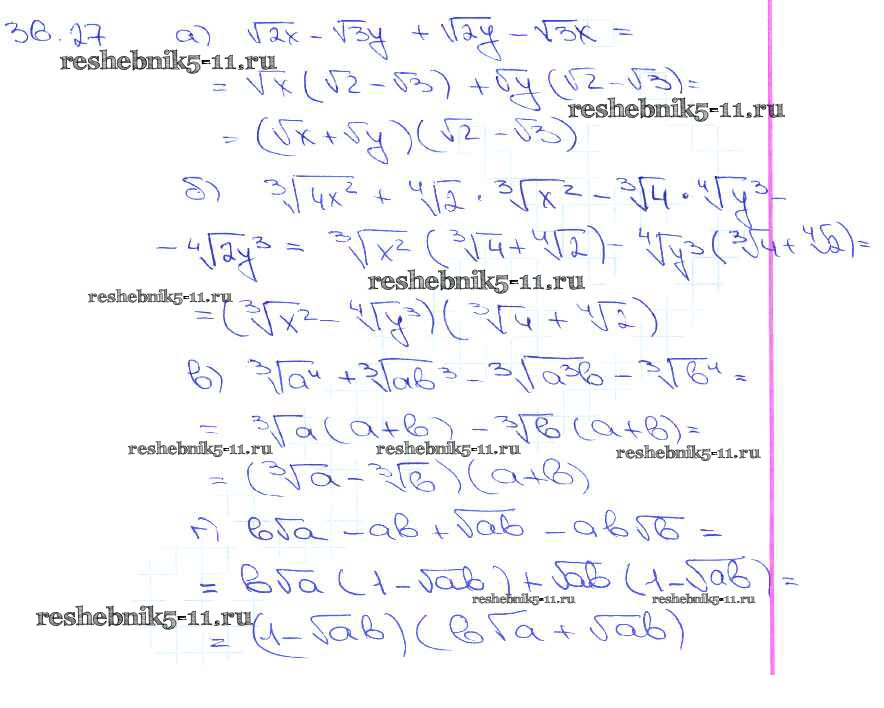 38.27 а) √2x - √3y + √2y - √3x =
reshebnik5-11.ru
= √x (√2 - √3) + √y (√2 - √3) =
reshebnik5-11.ru
= (√x + √y)(√2 - √3)
б) ∛4x² + ∜2 · ∛x² - ∛4 · ∜y³ -
- ∜2y³ = ∛x² (∛4 + ∜2) - ∜y³ (∛4 + ∜2) =
reshebnik5-11.ru
reshebnik5-11.ru
= (∛x² - ∜y³)(∛4 + ∜2)
в) ∛a⁴ + ∛ab³ - ∛a³b - ∛b⁴ =
= ∛a (a+b) - ∛b (a+b) =
reshebnik5-11.ru reshebnik5-11.ru reshebnik5-11.ru
= (∛a - ∛b)(a+b)
г) b√a - ab + √ab - ab√b =
= b√a (1 - √ab) + √ab (1 - √ab) =
reshebnik5-11.ru reshebnik5-11.ru
reshebnik5-11.ru
= (1 - √ab)(b√a + √ab)